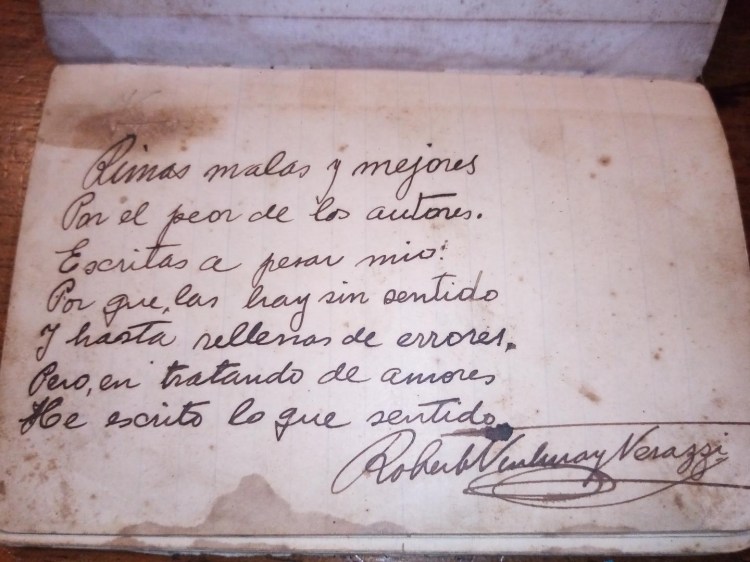 Rimas malas y mejores
Por el peor de los autores.
Escritas a pesar mio:
Por que, las hay sin sentido
Y hasta rellenas de errores.
Pero, en tratando de amores
He escrito lo que sentido
Robert